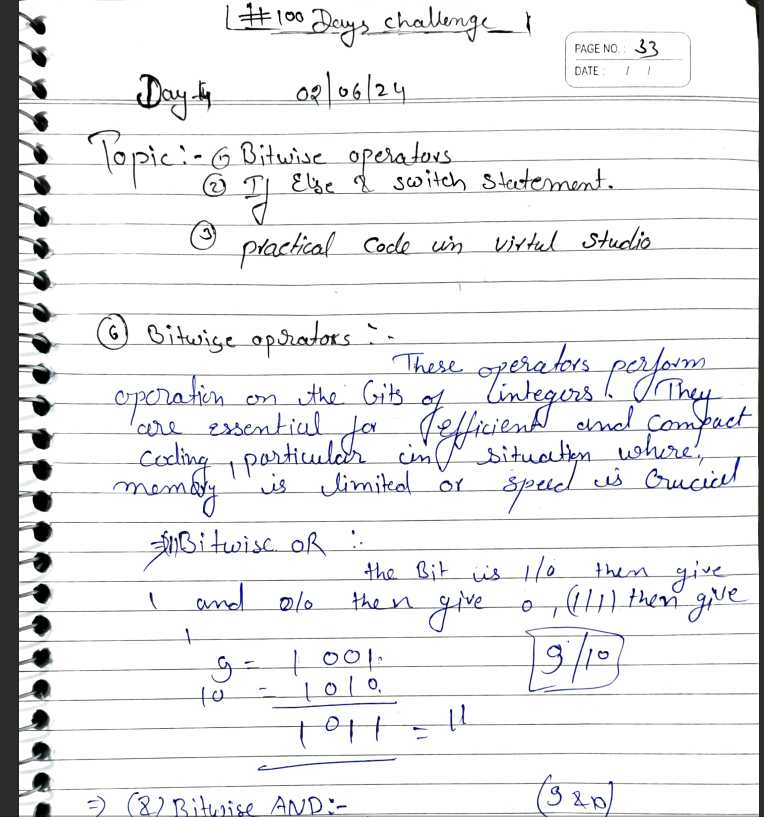 #100 Days challenge
PAGE NO. : 33
DATE : / /
Day-4 02/06/24
Topic:- ① Bitwise operators
② If Else & switch Statement.
③ practical Code in virtul Studio
⑥ Bitwise operators :-
These operators perform
operation on the bits of integers. They
are essential for efficient and compact
coding, particular in situation where,
memory is limited or speed is Crucial
⇒(|) Bitwise OR :
the Bit is 1/0 then give
1 and 0/0 then give 0, (1/1) then give
1
9 = 1001
10 = 1010
9/10
1011 = 11
⇒ (&) Bitwise AND:- (9 & 10)